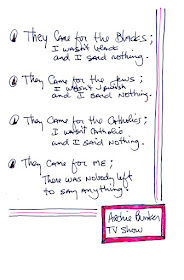 They Came for the Blacks;
I wasn't black
and I said nothing.
They Came for the Jews;
I wasn't Jewish
and I said nothing.
They Came for the Catholics;
I wasn't Catholic
and I said nothing.
They Came for ME;
There was Nobody left
to say anything.
Archie Bunker
TV Show